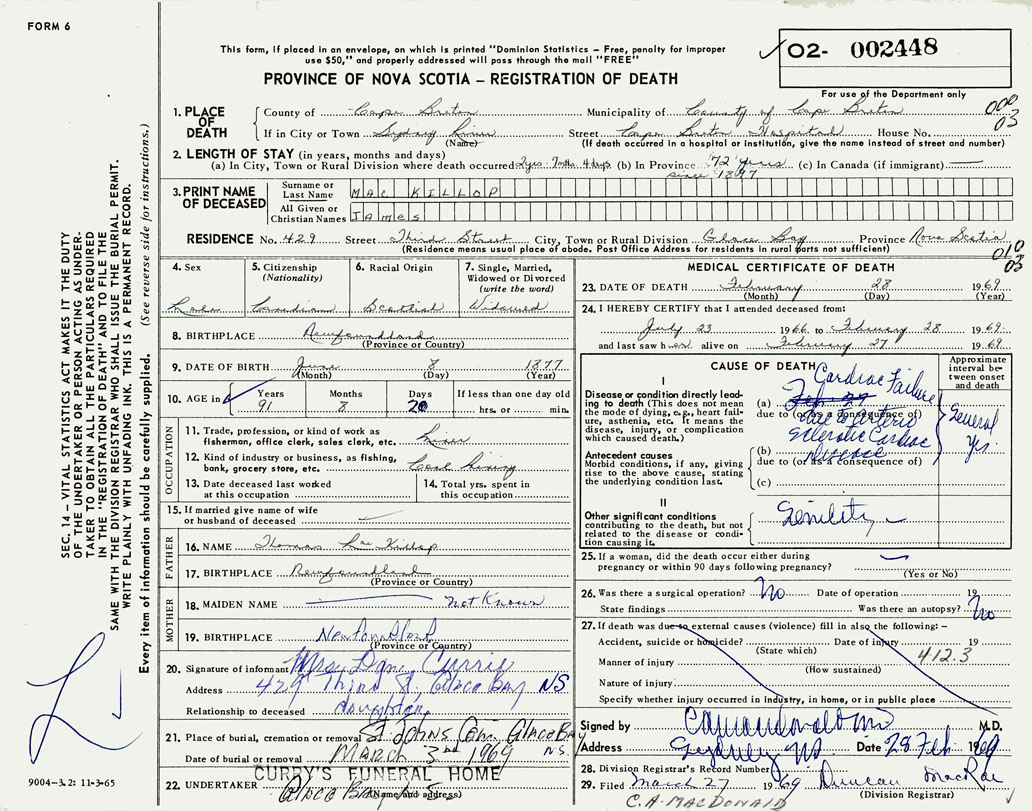 FORM 6
This form, if placed in an envelope, on which is printed "Dominion Statistics – Free, penalty for improper
use $50," and properly addressed will pass through the mail "FREE"
O2- 002448
PROVINCE OF NOVA SCOTIA – REGISTRATION OF DEATH
For use of the Department only
1. PLACE OF DEATH
County of Cape Breton Municipality of County of Cape Breton 000
If in City or Town Sydney River Street Cape Breton Hospital House No. 03
(Name) (If death occurred in a hospital or institution, give the name instead of street and number)
2. LENGTH OF STAY (in years, months and days)
(a) In City, Town or Rural Division where death occurred 2yrs. 7mths. 4days (b) In Province 72 years (c) In Canada (if immigrant)
since 1897
3. PRINT NAME OF DECEASED
Surname or Last Name MAC KILLOP
All Given or Christian Names James
RESIDENCE No. 429 Street Third Street City, Town or Rural Division Glace Bay Province Nova Scotia
(Residence means usual place of abode. Post Office Address for residents in rural parts not sufficient)
010
03
4. Sex
5. Citizenship (Nationality) Canadian
6. Racial Origin Scottish
7. Single, Married, Widowed or Divorced (write the word) Widowed
8. BIRTHPLACE Newfoundland
(Province or Country)
9. DATE OF BIRTH June 8 1877
(Month) (Day) (Year)
10. AGE in Years 91 Months 8 Days 20 If less than one day old
hrs. or min.
OCCUPATION
11. Trade, profession, or kind of work as
fisherman, office clerk, sales clerk, etc. Miner
12. Kind of industry or business, as fishing,
bank, grocery store, etc. Coal Mining
13. Date deceased last worked
at this occupation
14. Total yrs. spent in
this occupation
15. If married give name of wife
or husband of deceased
FATHER
16. NAME Thomas MacKillop
17. BIRTHPLACE Newfoundland
(Province or Country)
MOTHER
18. MAIDEN NAME not Known
19. BIRTHPLACE Newfoundland
(Province or Country)
20. Signature of informant Mrs. Dan Currie
Address 429 Third St, Glace Bay NS
Relationship to deceased daughter
21. Place of burial, cremation or removal St Johns Cem. Glace Bay
N.S.
Date of burial or removal March 3nd 1969
CURRY'S FUNERAL HOME
22. UNDERTAKER Glace Bay
(Name and address)
MEDICAL CERTIFICATE OF DEATH
23. DATE OF DEATH February 28 1969
(Month) (Day) (Year)
24. I HEREBY CERTIFY that I attended deceased from:
July 23 1966 to February 28 1969.
and last saw h alive on February 27 1969.
CAUSE OF DEATH
Approximate interval between onset and death
I
Disease or condition directly leading to death (This does not mean the mode of dying, e.g., heart failure, asthenia, etc. It means the disease, injury, or complication which caused death.)
Cardiac Failure
(a)
due to (or as a consequence of)
due to Arterio
Sclerotic Cardiac
(b) Disease
due to (or as a consequence of)
Several
Yrs
Antecedent causes
Morbid conditions, if any, giving rise to the above cause, stating the underlying condition last.
(c)
II
Other significant conditions
contributing to the death, but not related to the disease or condition causing it.
Senility
25. If a woman, did the death occur either during
pregnancy or within 90 days following pregnancy?
(Yes or No)
26. Was there a surgical operation? No Date of operation 19
State findings Was there an autopsy? No
27. If death was due to external causes (violence) fill in also the following: –
Accident, suicide or homicide? Date of injury 19
(State which) 412.3
Manner of injury
(How sustained)
Nature of injury
Specify whether injury occurred in industry, in home, or in public place
Signed by M.D.
Address Sydney NS. Date 28 Feb 1969
28. Division Registrar's Record Number
29. Filed March 27 1969 Duncan MacRae
(Division Registrar)
C. A. MACDONALD
SEC. 14 – VITAL STATISTICS ACT MAKES IT THE DUTY
OF THE UNDERTAKER OR PERSON ACTING AS UNDER-
TAKER TO OBTAIN ALL THE PARTICULARS REQUIRED
IN THE "REGISTRATION OF DEATH" AND TO FILE THE
SAME WITH THE DIVISION REGISTRAR WHO SHALL ISSUE THE BURIAL PERMIT.
WRITE PLAINLY WITH UNFADING INK. THIS IS A PERMANENT RECORD.
Every item of information should be carefully supplied. (See reverse side for instructions.)
9004–3.2: 11-3-65